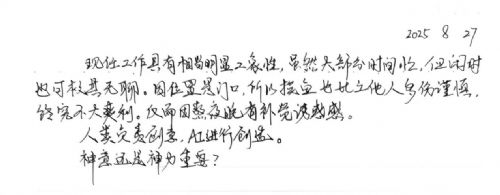 2025 8 27
现任工作具有相当明显二象性,虽然大部分时间忙,但闲时
也可极其无聊。因位置是门口,所以摸鱼也比之他人多份谨慎,
终究不大爽利。仅而因熬夜既有补觉诱惑感。
人类负责创意,AI进行创造。
神意还是神力重要?